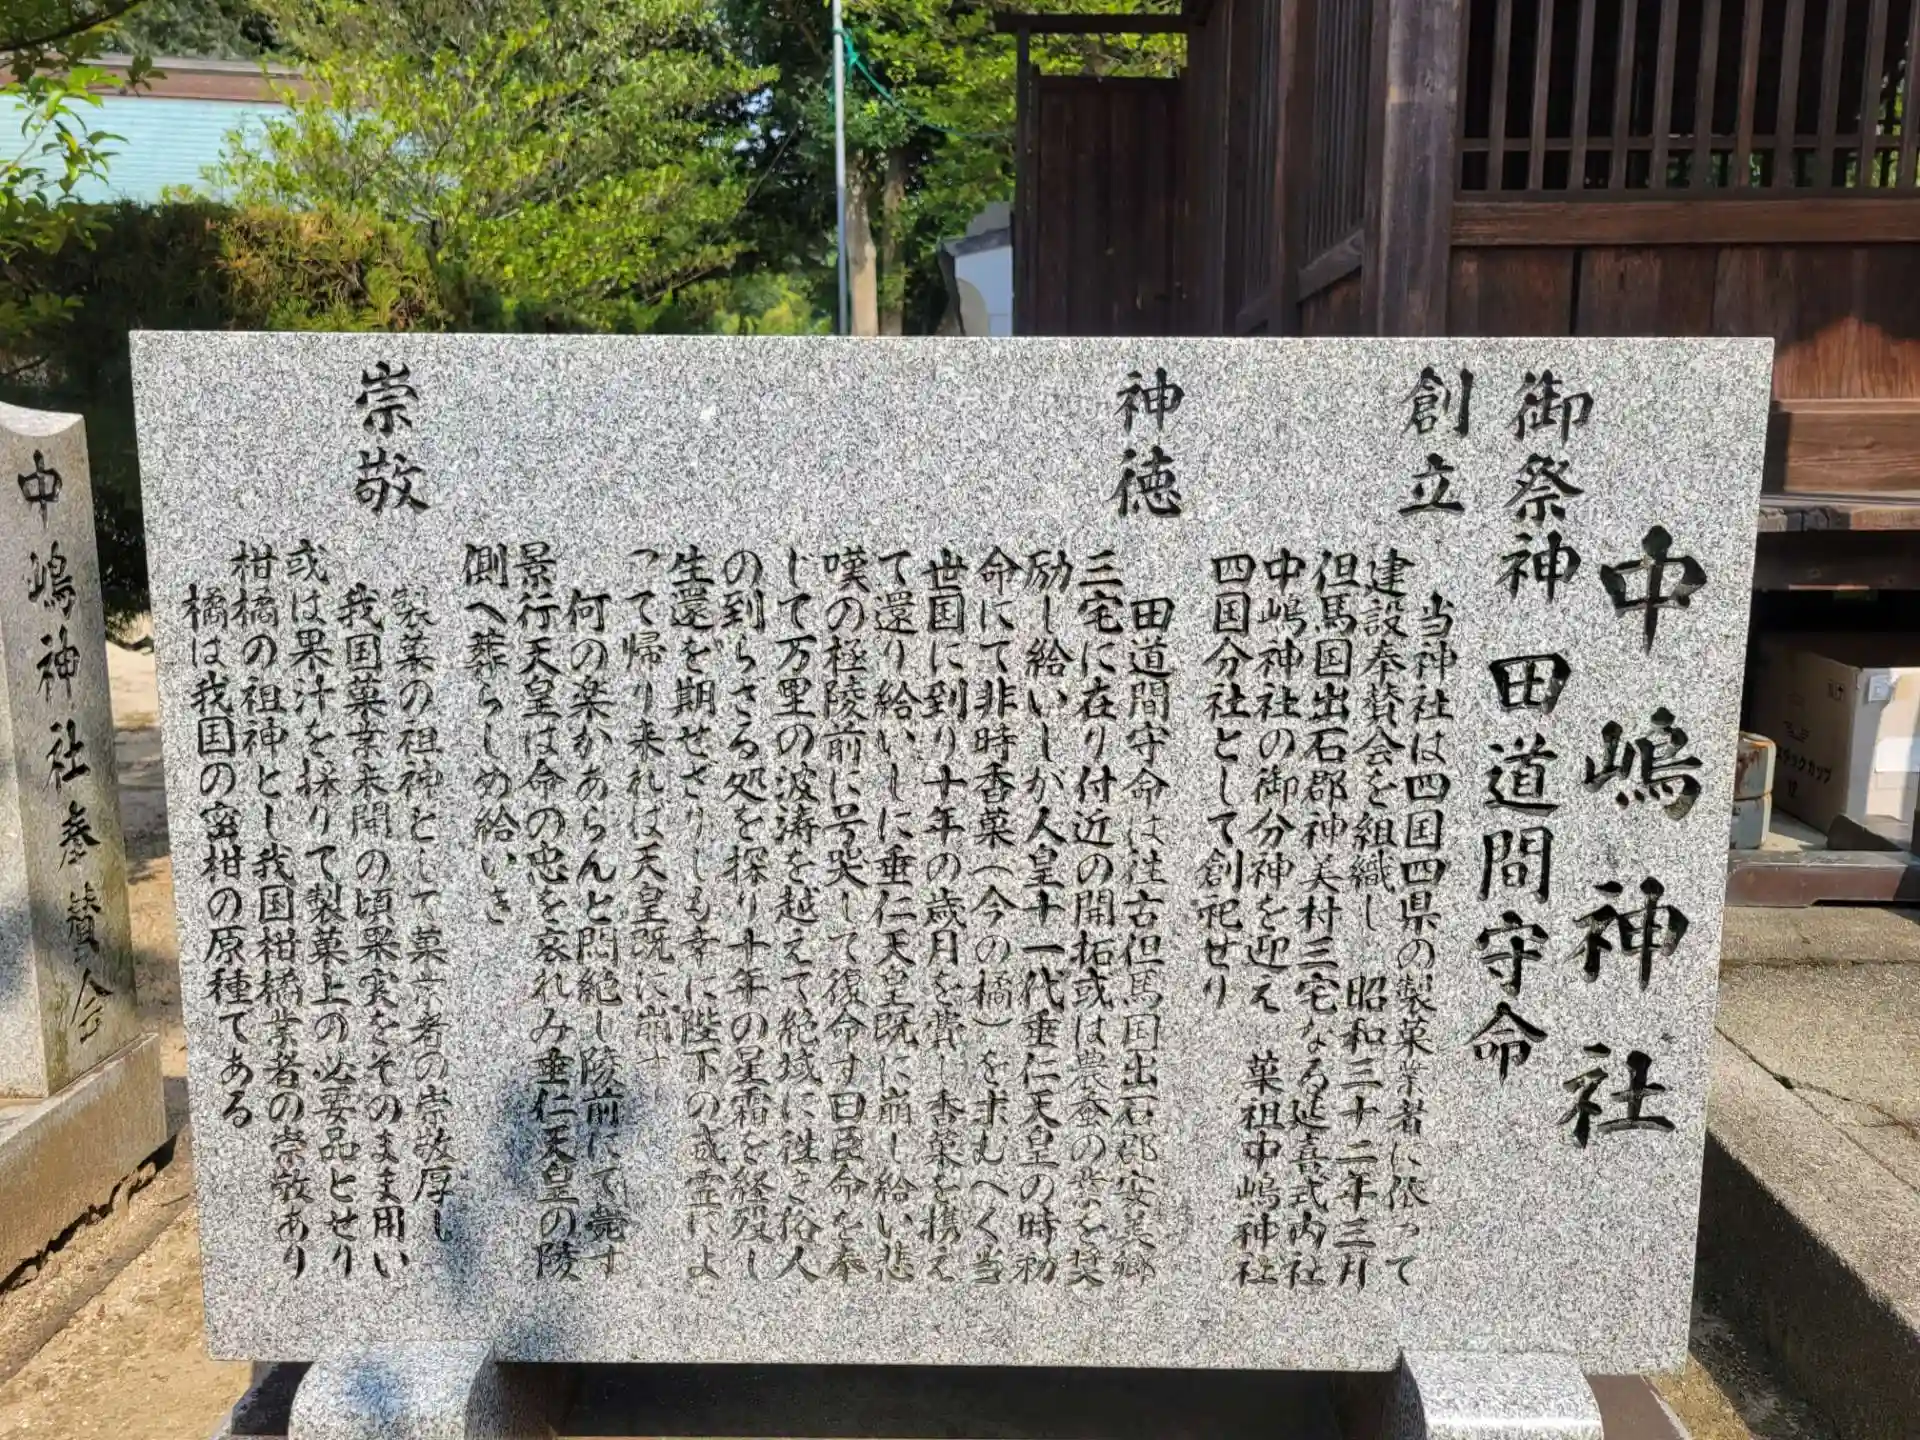 中嶋神社
御祭神 田道間守命
創立
当神社は四国四県の製菓業者に依って
建設奉賛会を組織し 昭和三十二年三月
但馬国出石郡神美村三宅なる延喜式内社
中嶋神社の御分神を迎え 菓祖中嶋神社
四国分社として創祀せり
神徳
田道間守命は往古但馬国出石郡安美郷
三宅に在り付近の開拓或は農蚕の業を奨
励し給いしが人皇十一代垂仁天皇の時勅
命にて非時香菓(今の橘)を求むべく当
世国に到り十年の歳月を費し香菓を携え
て還り給いしに垂仁天皇既に崩し給い悲
嘆の極陵前に号哭して復命す曰臣命を奉
じて万里の波涛を越えて絶域に往き俗人
の到らざる処を探り十年の星霜を経残し
生還を期せざりしも幸に陛下の威霊によ
って帰り来れば天皇既に崩す
何の楽かあらんと悶絶し陵前にて薨す
景行天皇は命の忠を哀れみ垂仁天皇の陵
側へ葬らしめ給いき
崇敬
製菓の祖神として菓業者の崇敬厚し
我国菓業未開の頃果実をそのまま用い
或は果汁を採りて製菓上の必要品とせり
柑橘の祖神とし我国柑橘業者の崇敬あり
橘は我国の蜜柑の原種てある
中嶋神社奉賛会
スチックカップ
12